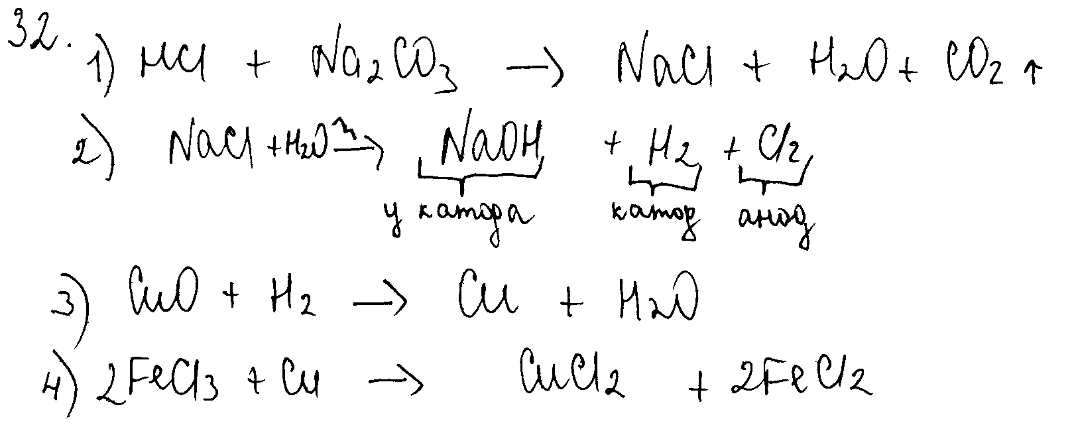 32.
1) HCl + Na₂CO₃ → NaCl + H₂O + CO₂ ↑
2) NaCl + H₂O → NaOH + H₂ + Cl₂
у катода катод анод
3) CuO + H₂ → Cu + H₂O
4) 2FeCl₃ + Cu → CuCl₂ + 2FeCl₂